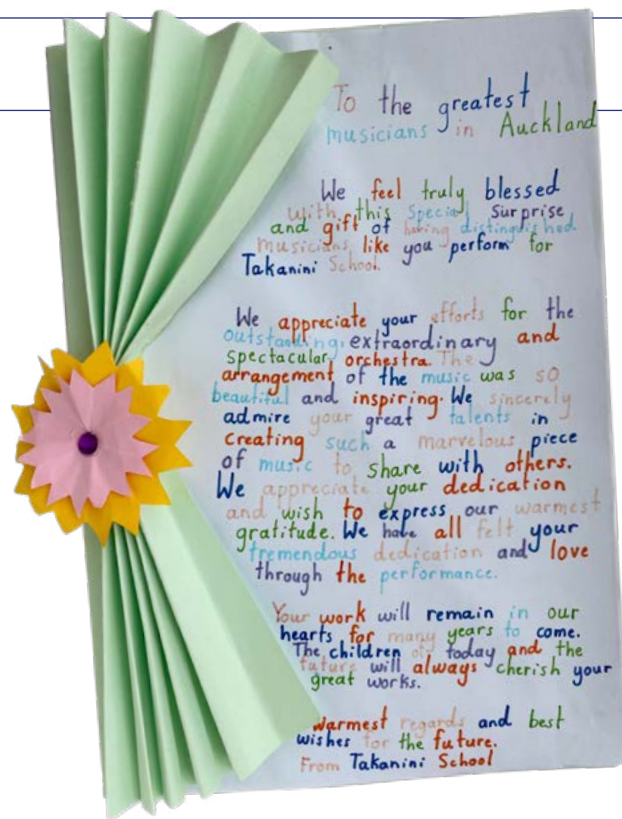 To the greatest
musicians in Auckland
We feel truly blessed
with this special surprise
and gift of having distinguished
musicians like you perform for
Takanini School.
We appreciate your efforts for the
outstanding, extraordinary and
spectacular orchestra. The
arrangement of the music was so
beautiful and inspiring. We sincerely
admire your great talents in
creating such a marvelous piece
of music to share with others.
We appreciate your dedication
and wish to express our warmest
gratitude. We have all felt your
tremendous dedication and love
through the performance.
Your work will remain in our
hearts for many years to come.
The children of today and the
future will always cherish your
great works.
Warmest regards and best
wishes for the future.
From Takanini School